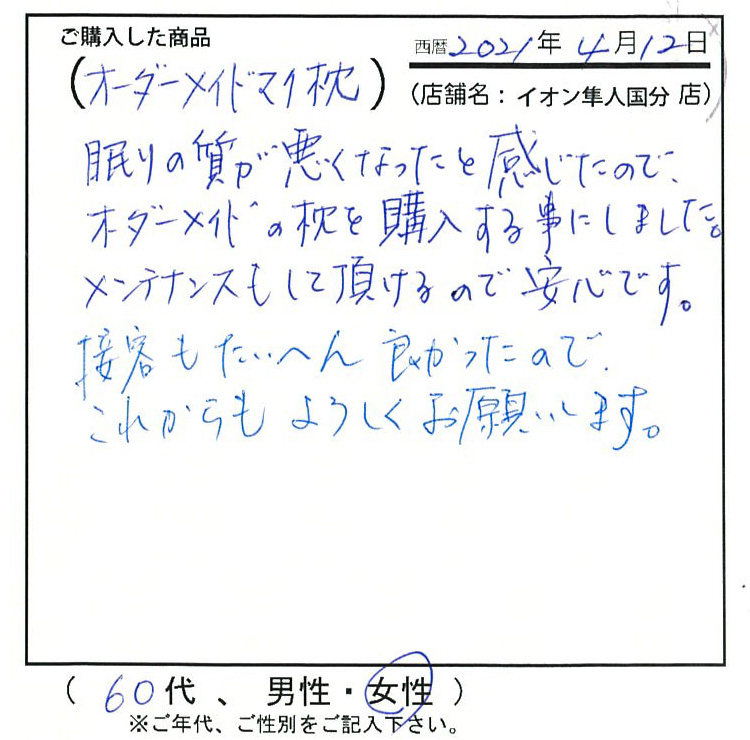 ご購入した商品
西暦2021年 4月12日
(オーダーメイドマイ枕)
(店舗名:イオン隼人国分 店)
眠りの質が悪くなったと感じたので、
オーダーメイドの枕を購入する事にしました。
メンテナンスもして頂けるので安心です。
接客もたいへん良かったので、
これからもよろしくお願いします。
( 60代 、 男性・女性 )
※ご年代、ご性別をご記入下さい。